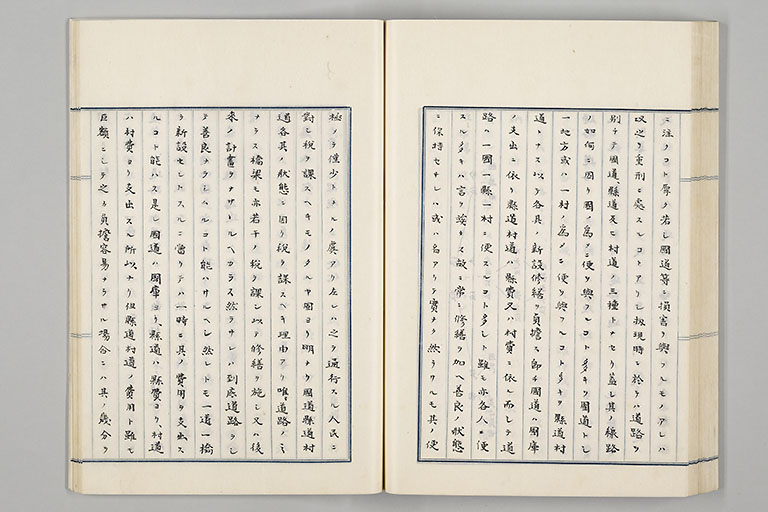 ニ注ノコト厚ク若シ國道等ニ損害ヲ與フルモノアレハ
以之ヲ重刑ニ處スルコトアリシ扨現時ニ於テハ道路ヲ
別チテ國道、縣道及ヒ村道ノ三種トナセリ蓋シ其ノ線路
ノ如何ニ因リ國ノ爲メニ便ヲ與フルコト多キヲ國道トシ
一地方或ハ一村ノ爲メニ便ヲ與フルコト多キヲ縣道村
道トナス以テ各其ノ新設修繕ヲ負擔ス即チ國道ハ國庫
ノ支出ニ依リ縣道村道ハ縣費又ハ村費ニ依ル而シテ道
路ハ一國一縣一村ニ便スルコト多シト雖モ亦各人ニ便
スル多キハ言ヲ竢タス故ニ常ニ修繕ヲ加ヘ善良ノ狀態
ニ保持セサレハ或ハ名アリテ實ナク然ラサルモ其ノ便
極メテ僅少トナルノ虞アリ左レハ之ヲ通行スル人民ニ
對シ稅ヲ課スヘキモノタルヤ固ヨリ明ナリ國道縣道村
道各其ノ狀態ニ因リ稅ヲ課スヘキ理由アリ唯道路ノミ
ナラス橋梁モ亦若干ノ稅ヲ課シ以テ修繕ヲ施シ又ハ後
來ノ計畫ヲナサヽルヘカラス然ラサレハ到底道路ヲシ
テ善良ナラシムルコト能ハサルヘシ然レトモ一道一橋
ヲ新設セントスルニ當リテハ一時ニ其ノ費用ヲ支出ス
ルコト能ハス是レ國道ハ國庫ヨリ、縣道ハ縣費ヨリ、村道
ハ村費ヨリ支出スル所以ナリ但縣道村道ノ費用ト雖モ
巨額ニシテ之カ負擔容易ナラサル場合ニハ其ノ幾分ヲ